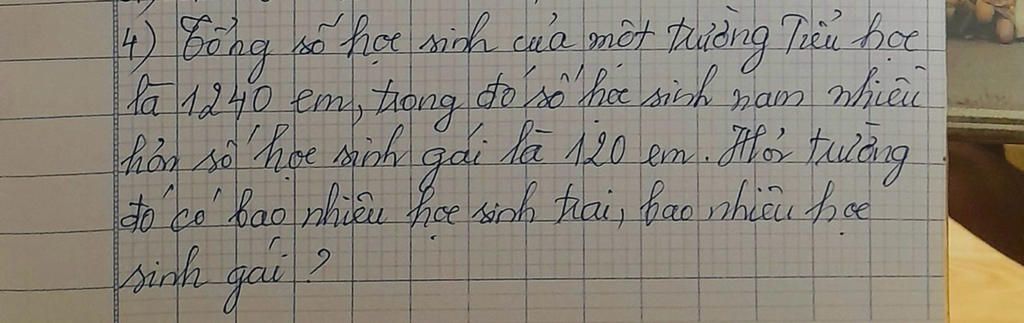 4) Tổng số học sinh của một trường Tiểu học
là 1240 em, trong đó số học sinh nam nhiều
hơn số học sinh gái là 120 em. Hỏi trường
đó có bao nhiêu học sinh trai, bao nhiêu học
sinh gái?